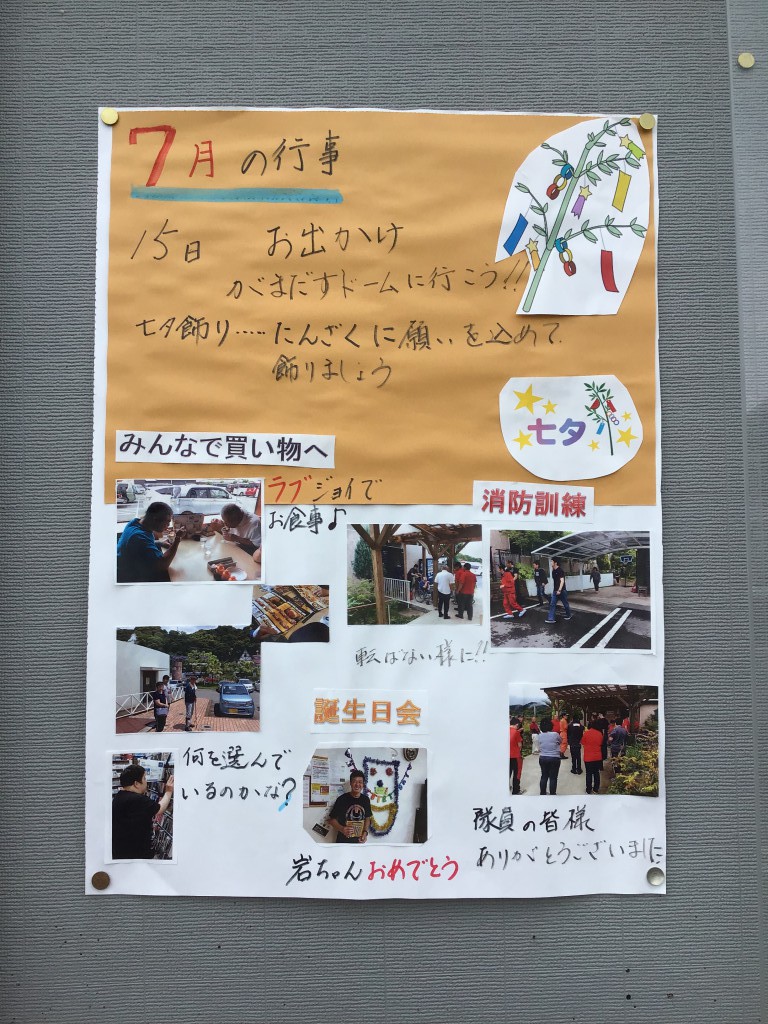 7月の行事
15日 お出かけ
がまだすドームに行こう!!
七夕飾り……たんざくに願いを込めて
飾りましょう
七夕
みんなで買い物へ
ラブジョイで
お食事♪
消防訓練
転ばない様に!!
誕生日会
何を選んで
いるのかな?
岩ちゃんおめでとう
隊員の皆様
ありがとうございました